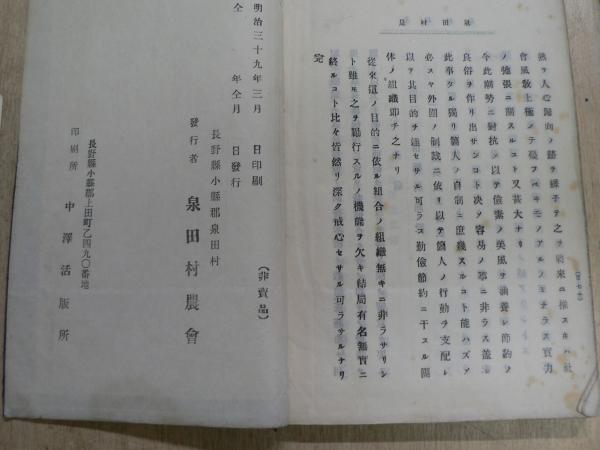 泉田村是
熟々人心趨向ノ跡ヲ繹子テ之ヲ將來ニ推スルハ社
會風敎上極メテ憂フベキモノアルノミナラス實力
ノ弛張ニ關スルコト又甚大ナリ
今此潮勢ニ對抗シ以テ儉素ノ美風ヲ涵養シ節約ノ
良俗ヲ作リ出サンコト决シテ容易ノ事ニ非ラス盖シ
此事タル獨リ箇人ノ自制ニ庶幾スルコト能ハズシテ
必スヤ外圍ノ制裁ニ依リ以テ箇人ノ行動ヲ支配シ
以テ其目的ヲ達セサル可ラス勤儉節約ニ干スル團
体ノ組織即チ之ナリ
從來這ノ目的ニ依ル組合ノ組織無キニ非ラサリシ
ト雖モ之ヲ勵行スルノ機能ヲ欠キ結局有名無實ニ
終ルコト比々皆然リ深ク戒心セサル可ラサルナリ
完
(非賣品)
明治三十九年三月 日印刷
仝 年仝月 日發行
長野縣小縣郡泉田村
發行者 泉田村農會
長野縣小縣郡上田町乙四九〇番地
印刷所 中澤活版所